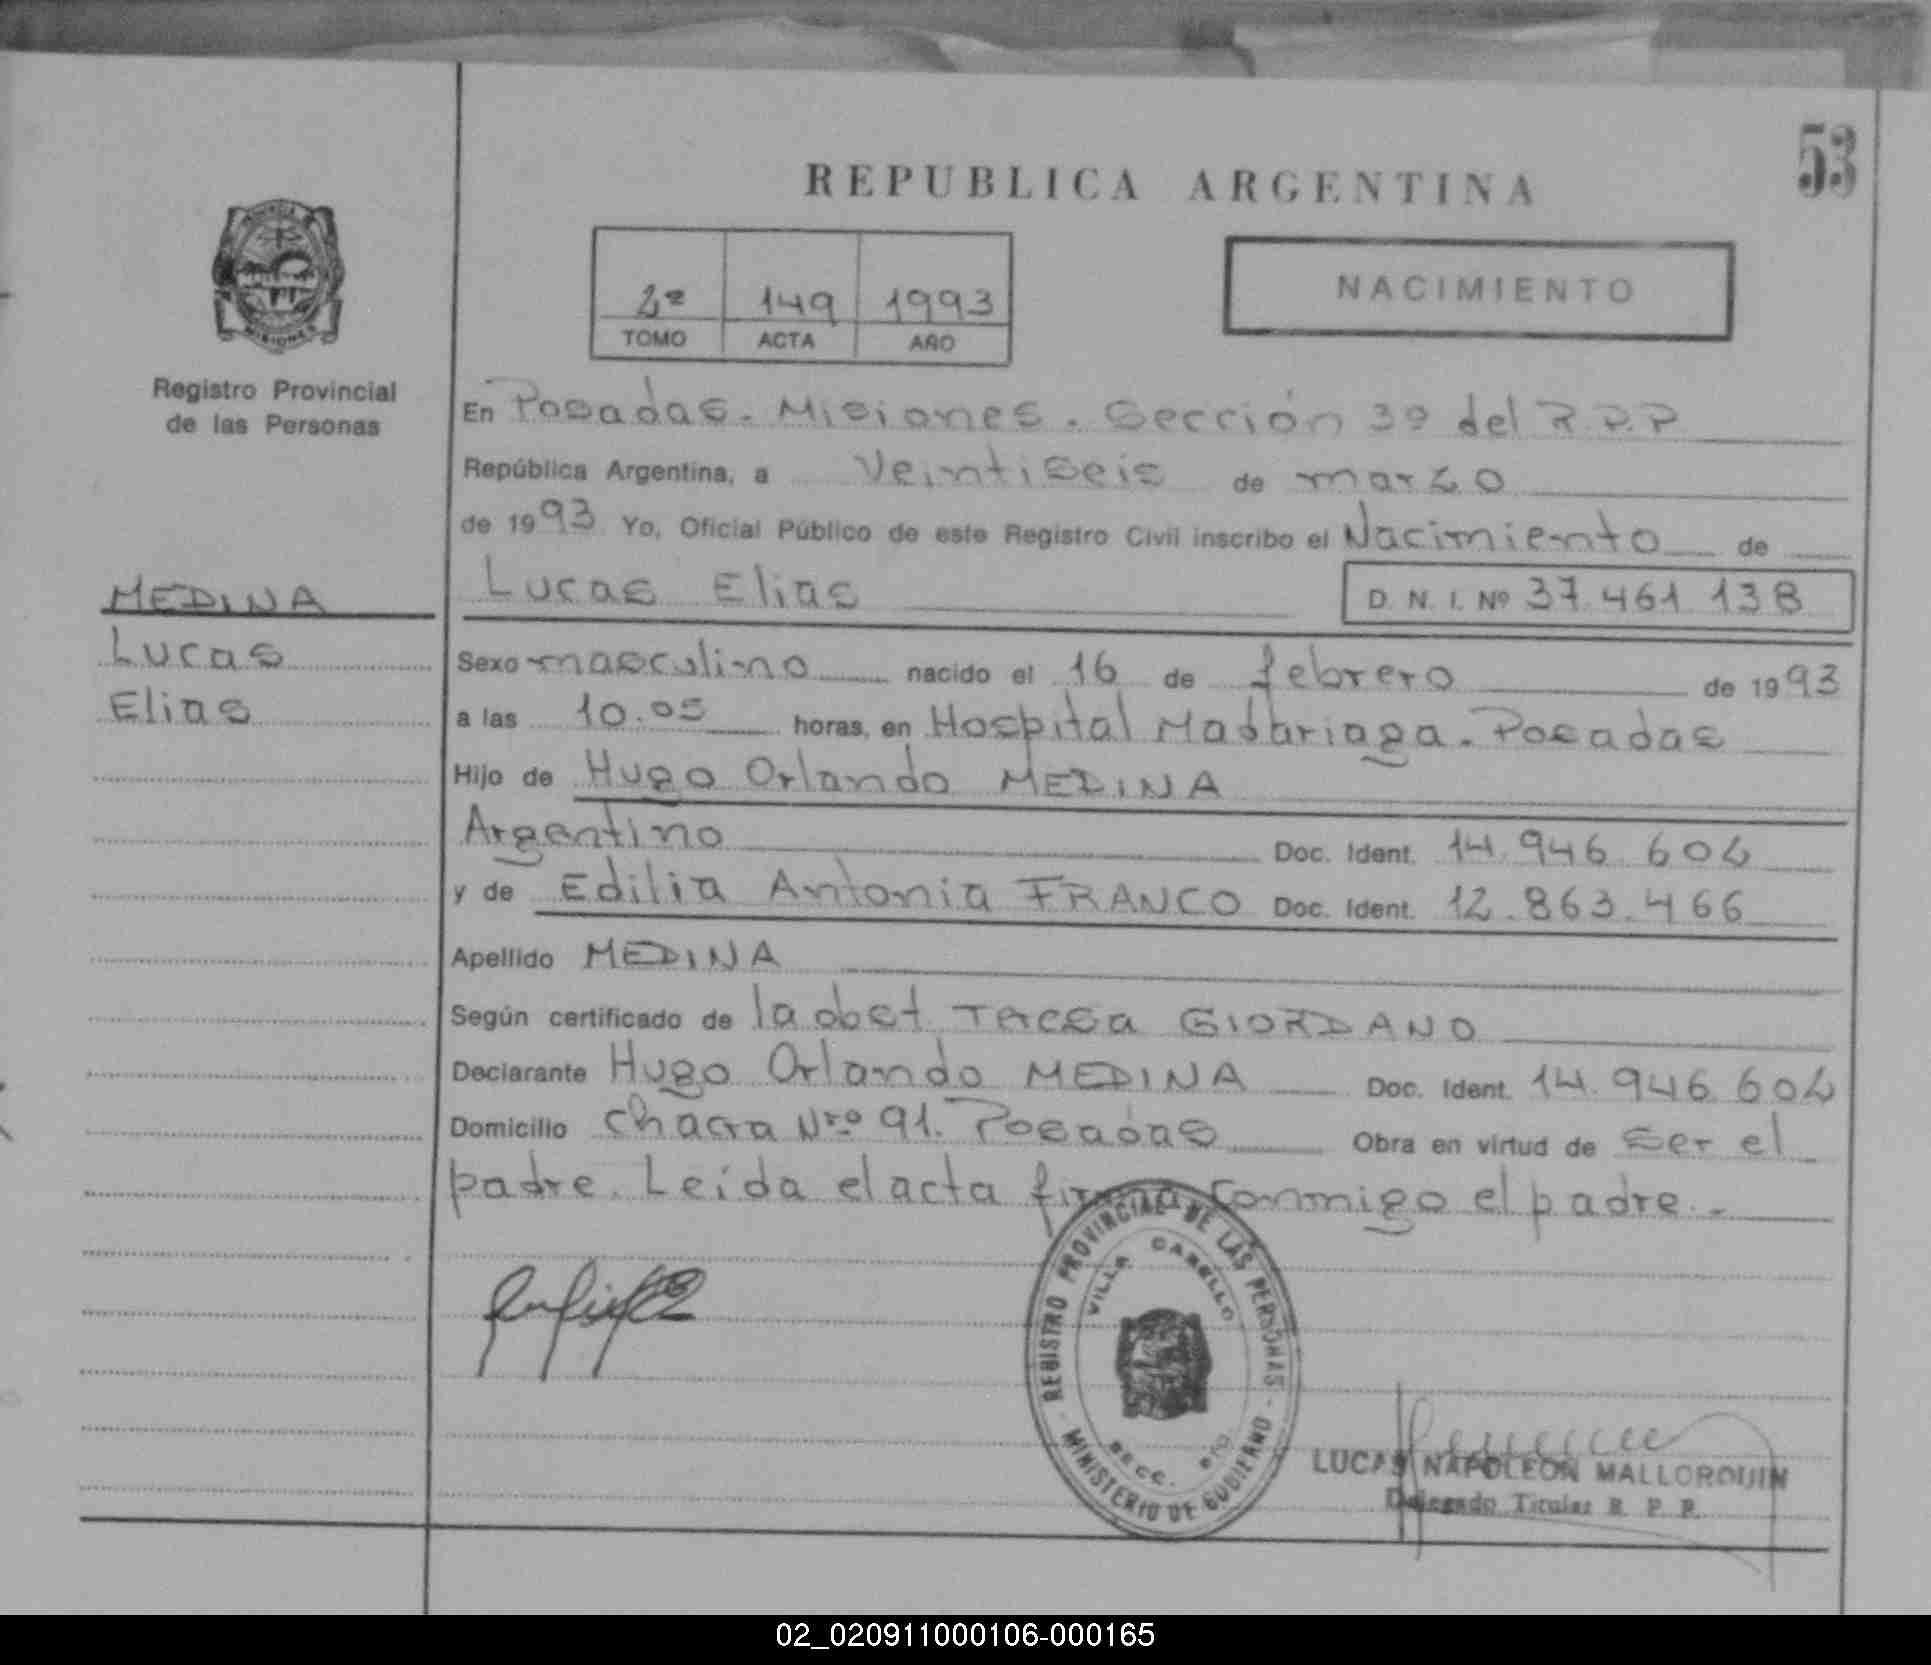 53
REPUBLICA ARGENTINA
NACIMIENTO
2º 149 1993
TOMO ACTA AÑO
PROVINCIA DE
MISIONES
Registro Provincial
de las Personas
En Posadas. Misiones. Sección 3º del R.P.P
República Argentina, a Veintiseis de marzo
de 1993 Yo, Oficial Público de este Registro Civil inscribo el Nacimiento de
Lucas Elias D. N. I. Nº 37.461.138
MEDINA
Lucas
Elias
Sexo masculino nacido el 16 de febrero de 1993
a las 10.05 horas, en Hospital Madariaga. Posadas
Hijo de Hugo Orlando MEDINA
Argentino Doc. Ident. 14.946.604
y de Edilia Antonia FRANCO Doc. Ident. 12.863.466
Apellido MEDINA
Según certificado de Teresa GIORDANO
Declarante Hugo Orlando MEDINA Doc. Ident. 14.946.604
Domicilio Chacra Nro 91. Posadas Obra en virtud de ser el
padre. Leída el acta firma conmigo el padre.-
REGISTRO PROVINCIAL DE LAS PERSONAS
VILLA CABELLO
SECC.
MINISTERIO DE GOBIERNO
LUCAS NAPOLEON MALLORQUIN
Delegado Titular R. P. P.
02_020911000106-000165